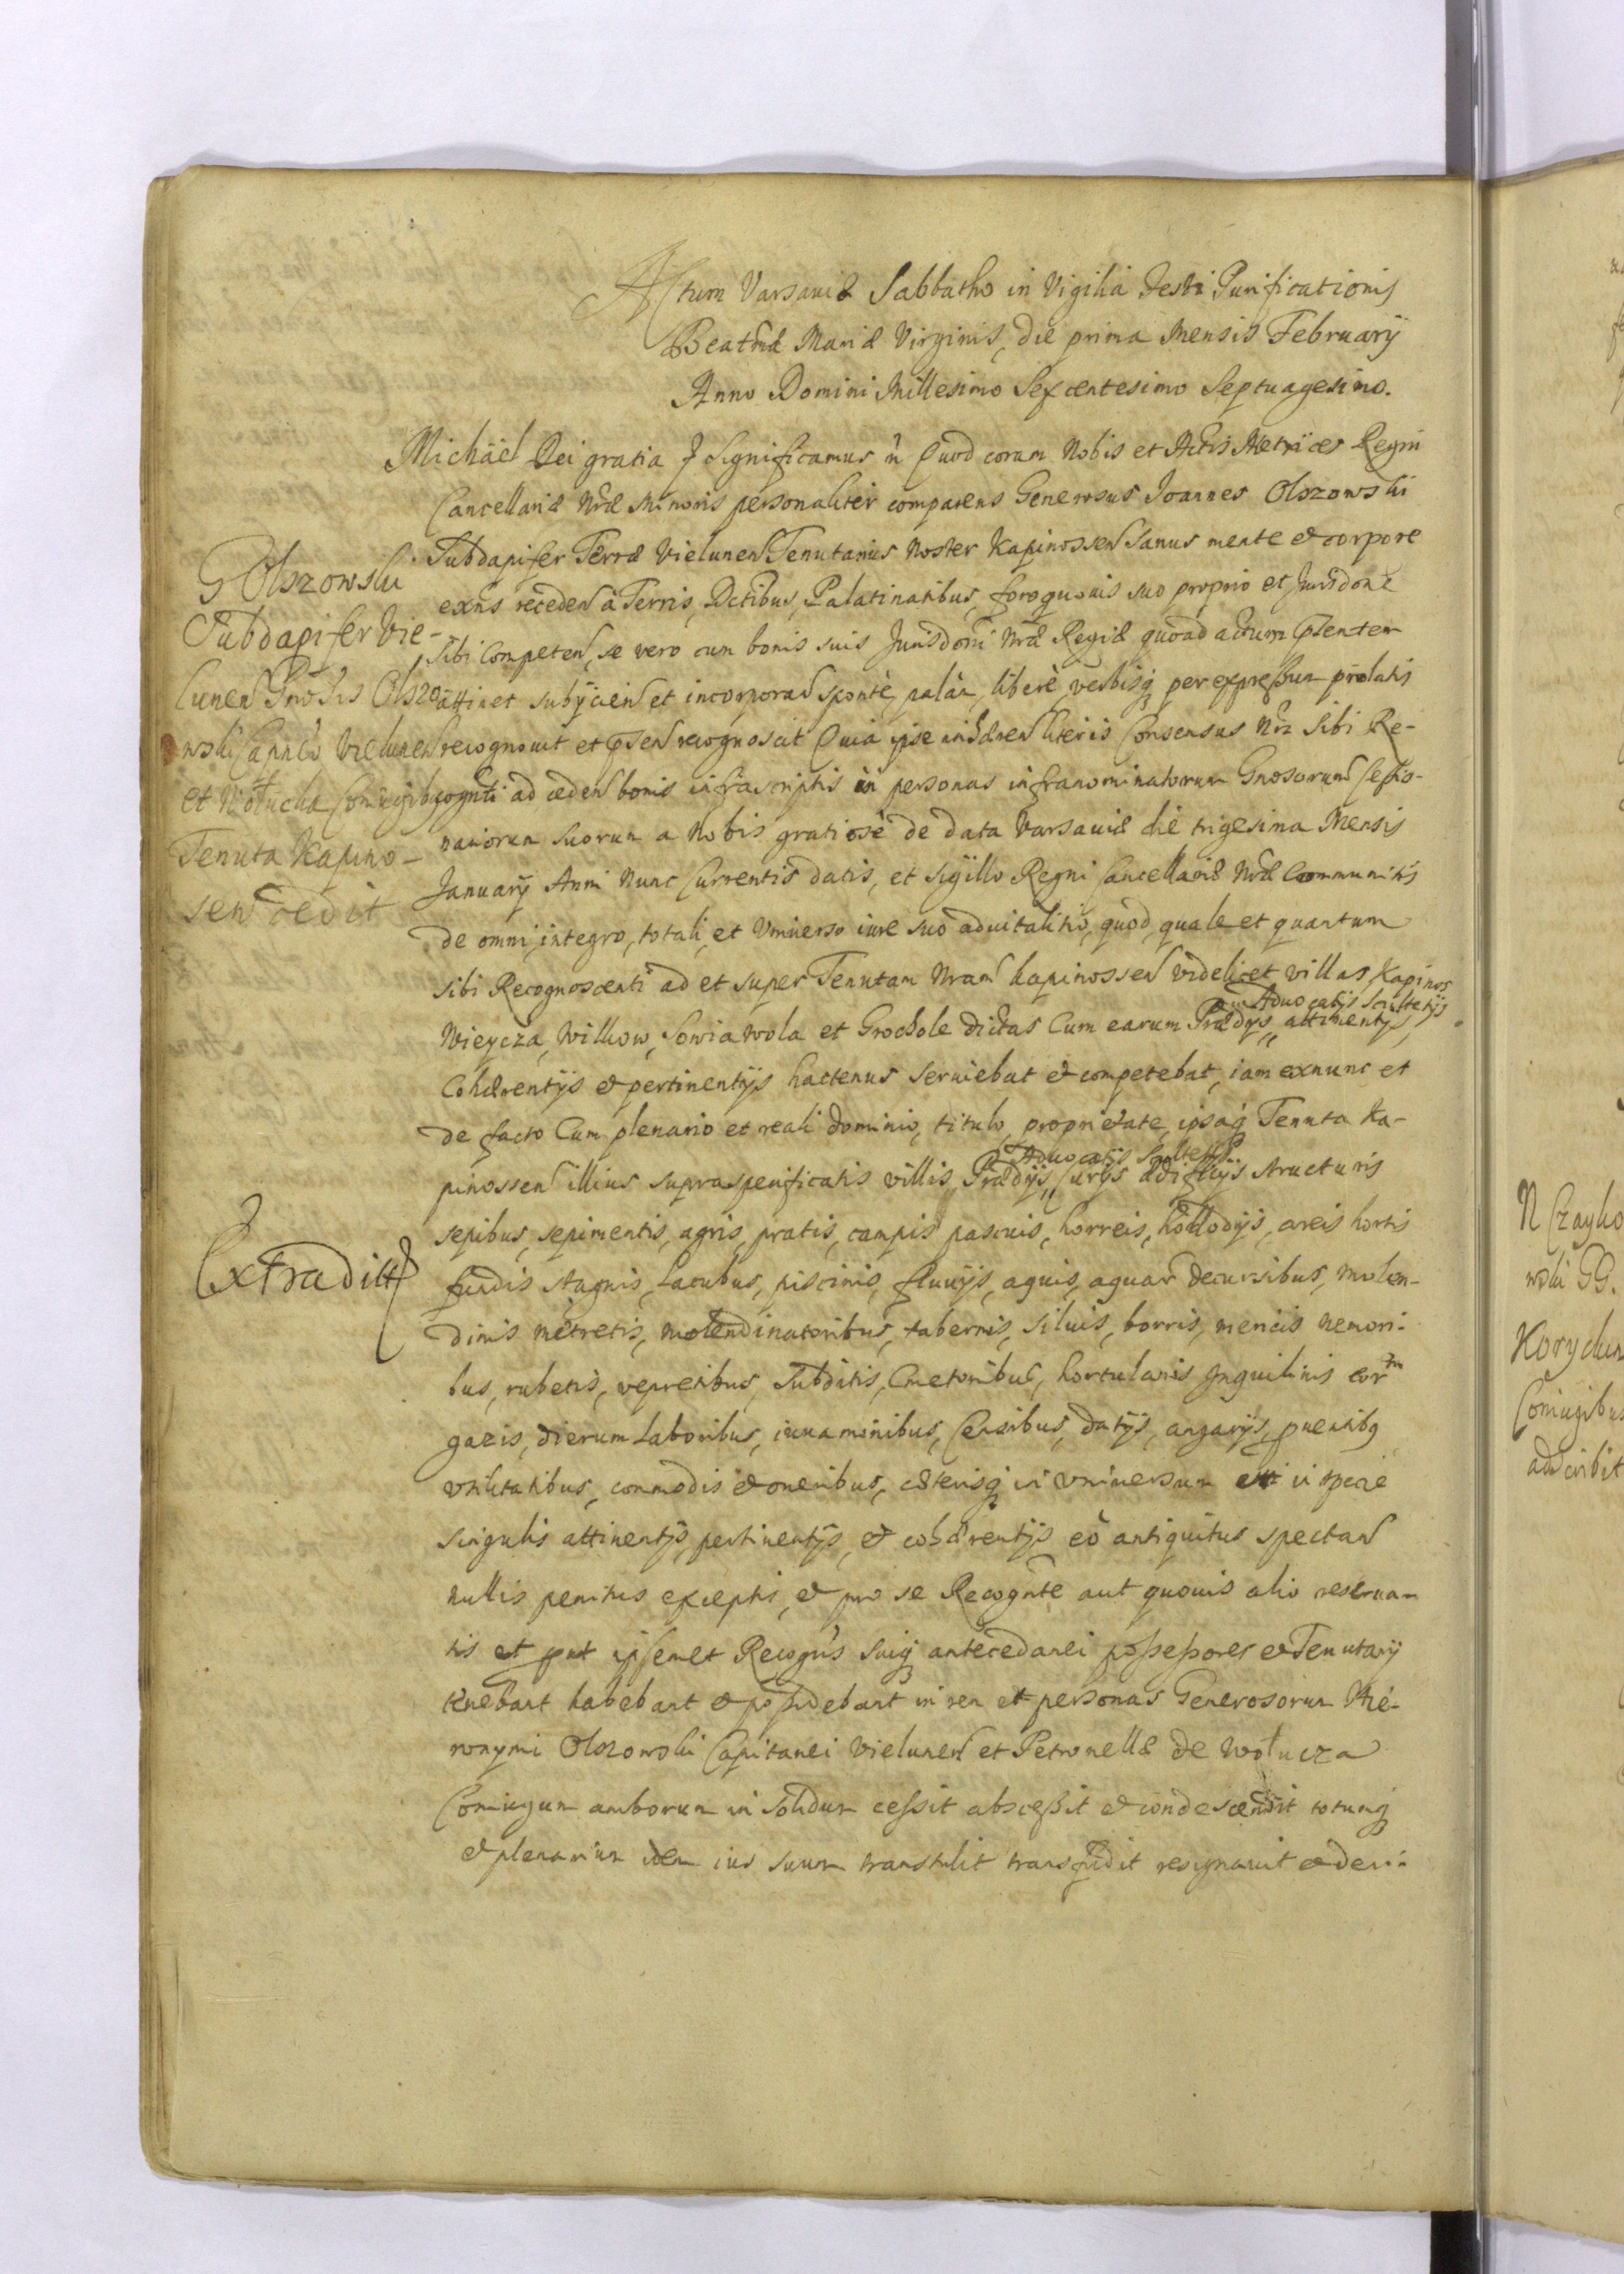 Actum Varsaviæ Sabbatho in Vigilia Festi Purificationis
Beatmæ Mariæ Virginis, die prima Mensis February
Anno Domini Millesimo Sexcentesimo Septuagesimo.
Michäel Dei gratia Significamus Quod coram Nobis et Actis Metrices Regni
Cancellariæ Nræ Minoris personaliter comparens Generosus Joannes Olszowski
Subdapifer Terræ Vielunen Tenutarius Noster Kapinossen Sanus mente et corpore
exns receden à Terris, Dctibus, Palatinatibus, foroquovis suo proprio et Jurisdone
sibi Competen, se vero cum bonis suis Jurisdoni Nræ Regiæ quoad actum pntem
attinet subÿcien et incorporan spontè, palàm, liberè, verbisq per expressum prolatis
recognovit et psen recognoscit Quia ipse inhæren literis Consensus Nri sibi Re-
cognti ad ceden bonis infrascriptis in personas infranominatorum Gnosorum Cessio-
nariorum suorum a Nobis gratiosè de data Varsaviæ die trigesima Mensis
January Anni Nunc Currentis datis, et Sigillo Regni Cancellariæ Nræ Communitis
de omni, integro, totali, et Universo iure suo advitalitio, quod, quale et quantum
sibi Recognoscenti ad et super Tenutam Nram Kapinossen videlicet villas, Kapinos
Wieycza, Wilkow, Sowia wola et Grochole dictas Cum earum Prædys, attinentys,
cum Advocatijs Scultetijs
Cohærentijs et pertinentijs hactenus serviebat et competebat, iam exnunc et
de facto Cum plenario et reali dominio, titulo, proprietate, ipsaq Tenuta Ka-
pinossen illius supraspecificatis villis, Prædijs, Curijs ædificijs structuris
Advocatijs Scultetijs
sepibus, sepimentis, agris, pratis, campis pascuis, horreis, areis hortis
fundis stagnis, Lacubus, piscinis, fluvijs, aquis, aquar decursibus, molen-
dinis metretis, molendinatoribus, tabernis, silvis, borris, mericis nemori-
bus, rubetis, vepretibus, Subditis, Cmetonibus, hortulanis Inquilinis eor
gazis, dierum Laboribus, iuvaminibus, Censibus, datijs, angarijs, proventibq
utilitatibus, commodis et oneribus, cæterisq in Universum in specie
singulis attinentijs, pertinentijs, et cohærentijs eò antiquitus spectan
nullis penitus exceptis, et pro se Recognte aut quovis alio reserva-
tis et put ipsemet Recogns suiq antecedanei possessores et Tenutarij
tenebant habebant et possidebant in rem et personas Generosorum Hie-
ronymi Olszowski Capitanei Vielunen et Petronellæ de Wołucza
Coniugum amborum in solidum cessit abscessit et condescendit totumq
et plenarium idem ius suum transtulit transfudit resignavit et deri-
G Olszowski
Subdapifer Vie-
lunen Gnosis Olszo
wski Capneo Vielunen
et Wołucka Coniugib
Tenuta Kapino-
sen cedit
Extradit
N Czayko
wski GG.
Korycku
Coniugibus
adscribit